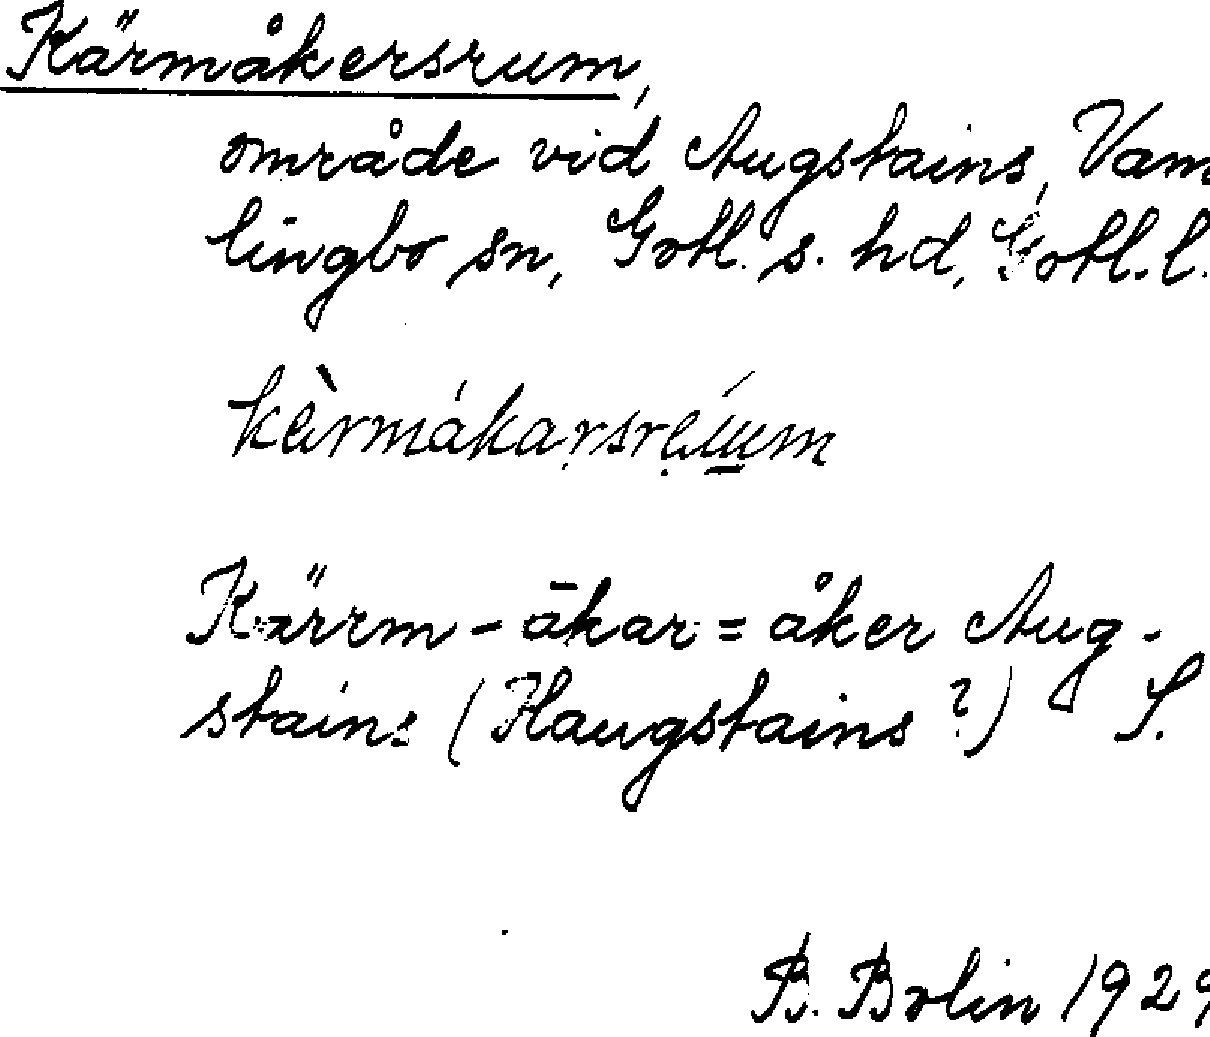 Kärmåkersrum,
område vid Augstains, Vam
lingbo sn, Gotl. s. hd, Gotl. l.
Kärrm-åkar = åker Aug-
stains (Haugstains?) S.
B. Bolin 1929